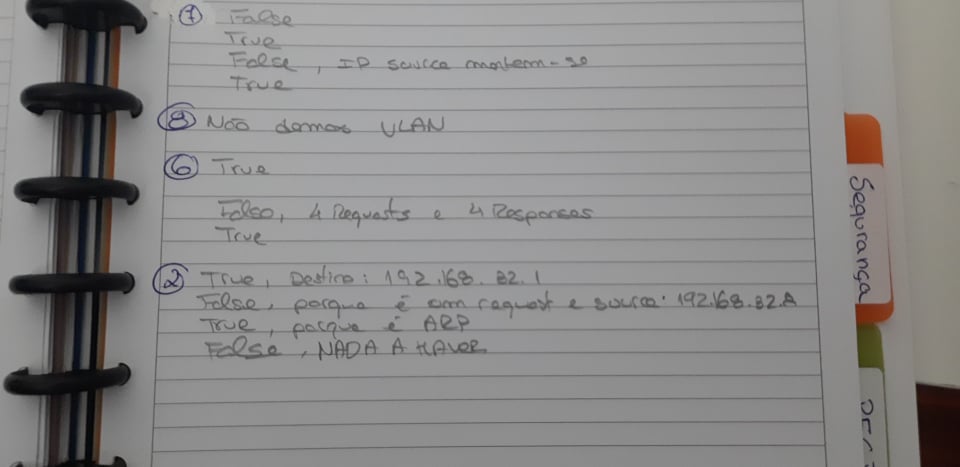 7 False
True
False, IP source mantem-se
True
8 Não damos VLAN
6 True
Falso, 4 Requests e 4 Responses
True
2 True, Destino: 192.168.82.1
False, porque é um request e source: 192.168.82.A
True, porque é ARP
False, NADA A HAVER
Segurança